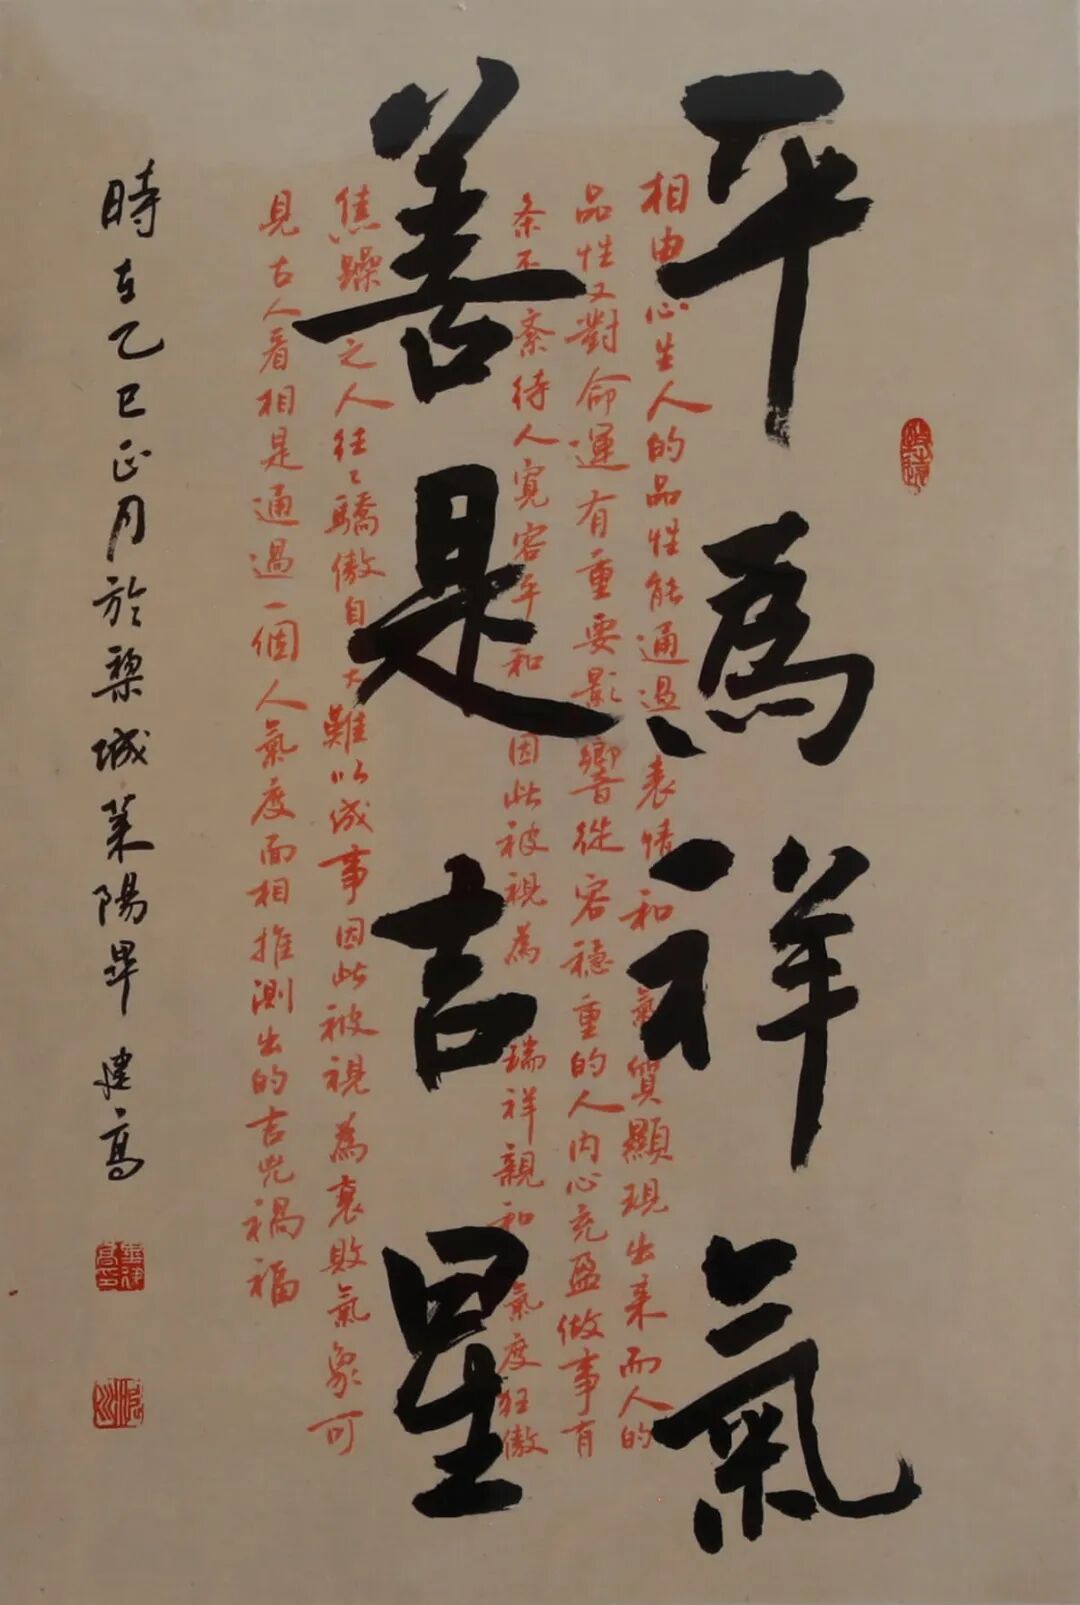 平為祥氣
善是吉星
相由心生人的品性能通過表情和氣質顯現出来而人的
品性又對命運有重要影響從容穩重的人内心充盈做事有
条不紊待人寬容平和因此被視為瑞祥親和氣度狂傲
焦躁之人往々驕傲自大難以成事因此被視為衰敗氣象可
見古人看相是通過一個人氣度面相推測出的吉兇禍福
時在乙巳正月於梨城莱陽畢建高